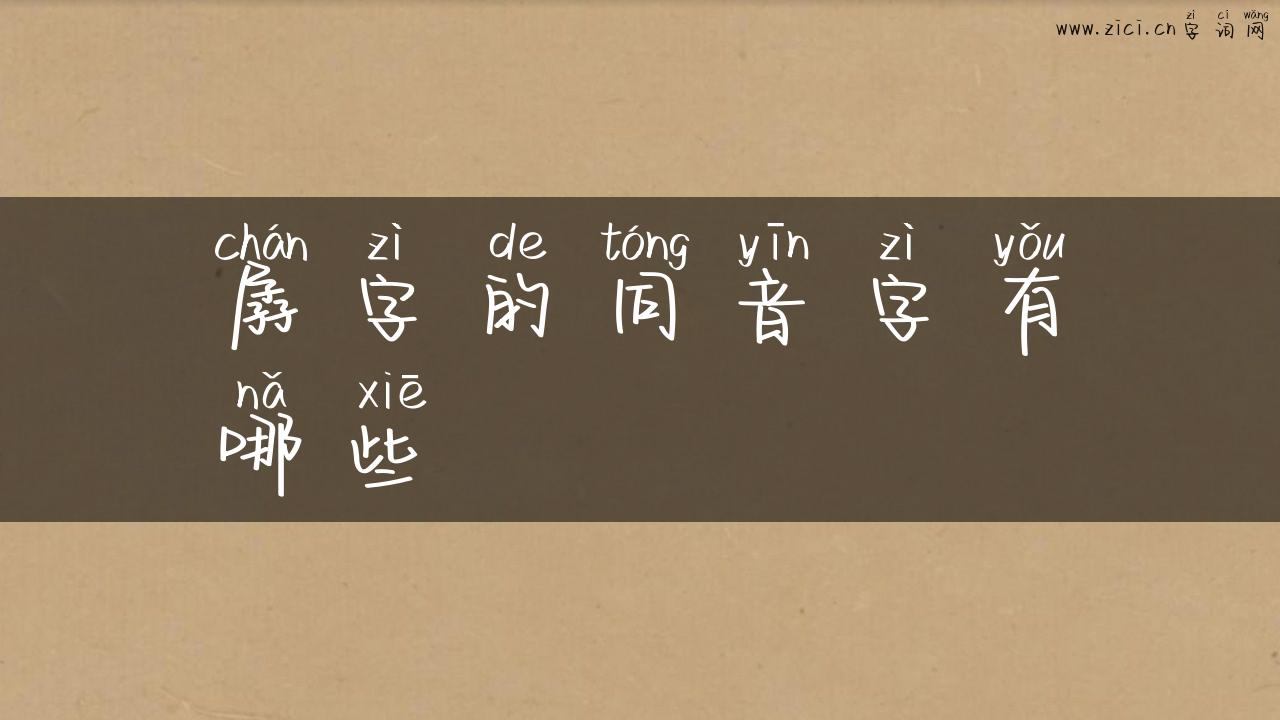 zì cí wǎng
www.zici.cn 字词网
chán zì de tóng yīn zì yǒu
孱字的同音字有
nǎ xiē
哪些